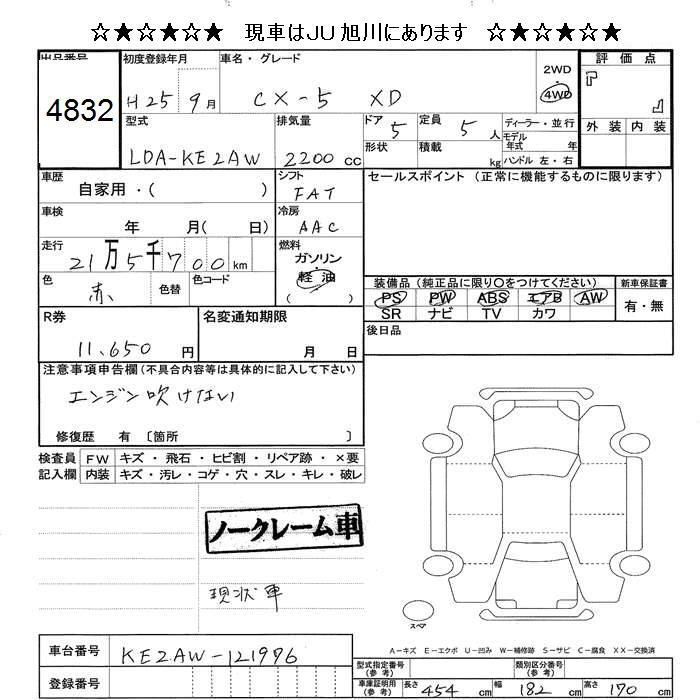 ☆★☆★☆★ 現車はJU旭川にあります ☆★☆★☆★
出品番号 初度登録年月 車名・グレード 評価点
4832 H25 9月 CX-5 XD 2WD 4WD
型式 排気量 ドア 定員 ディーラー・並行 外装 内装
LDA-KE2AW 2200cc 5 5人 モデル年式 年
形状 積載 kg ハンドル 左・右
車歴 自家用・( ) シフト FAT セールスポイント (正常に機能するものに限ります)
車検 年 月( 日) 冷房 AAC
走行 21万5千700km 燃料 ガソリン 軽油 ( )
色 赤 色替 色コード 装備品 (純正品に限り○をつけてください) 新車保証書
PS PW ABS エアB AW 有・無
SR ナビ TV カワ
R券 11,650円 名変通知期限 月 日 後日品
注意事項申告欄 (不具合内容等は具体的に記入して下さい)
エンジン吹けない
修復歴 有 〔箇所 〕
検査員 FW キズ・飛石・ヒビ割・リペア跡・×要
記入欄 内装 キズ・汚レ・コゲ・穴・スレ・キレ・破レ
ノークレーム車
現状車
スペア
A-キズ E-エクボ U-凹み W-補修跡 S-サビ C-腐食 XX-交換済
車台番号 KE2AW-121976
型式指定番号 (参考) 類別区分番号 (参考)
登録番号 車庫証明用 (参考) 長さ 454cm 幅 182cm 高さ 170cm